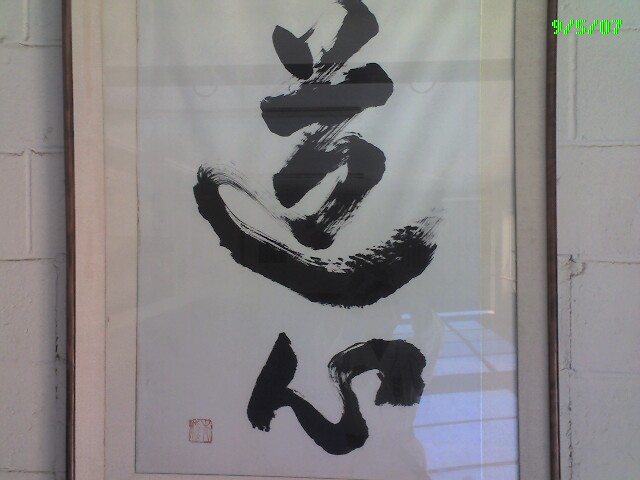 9/5/07
道
心